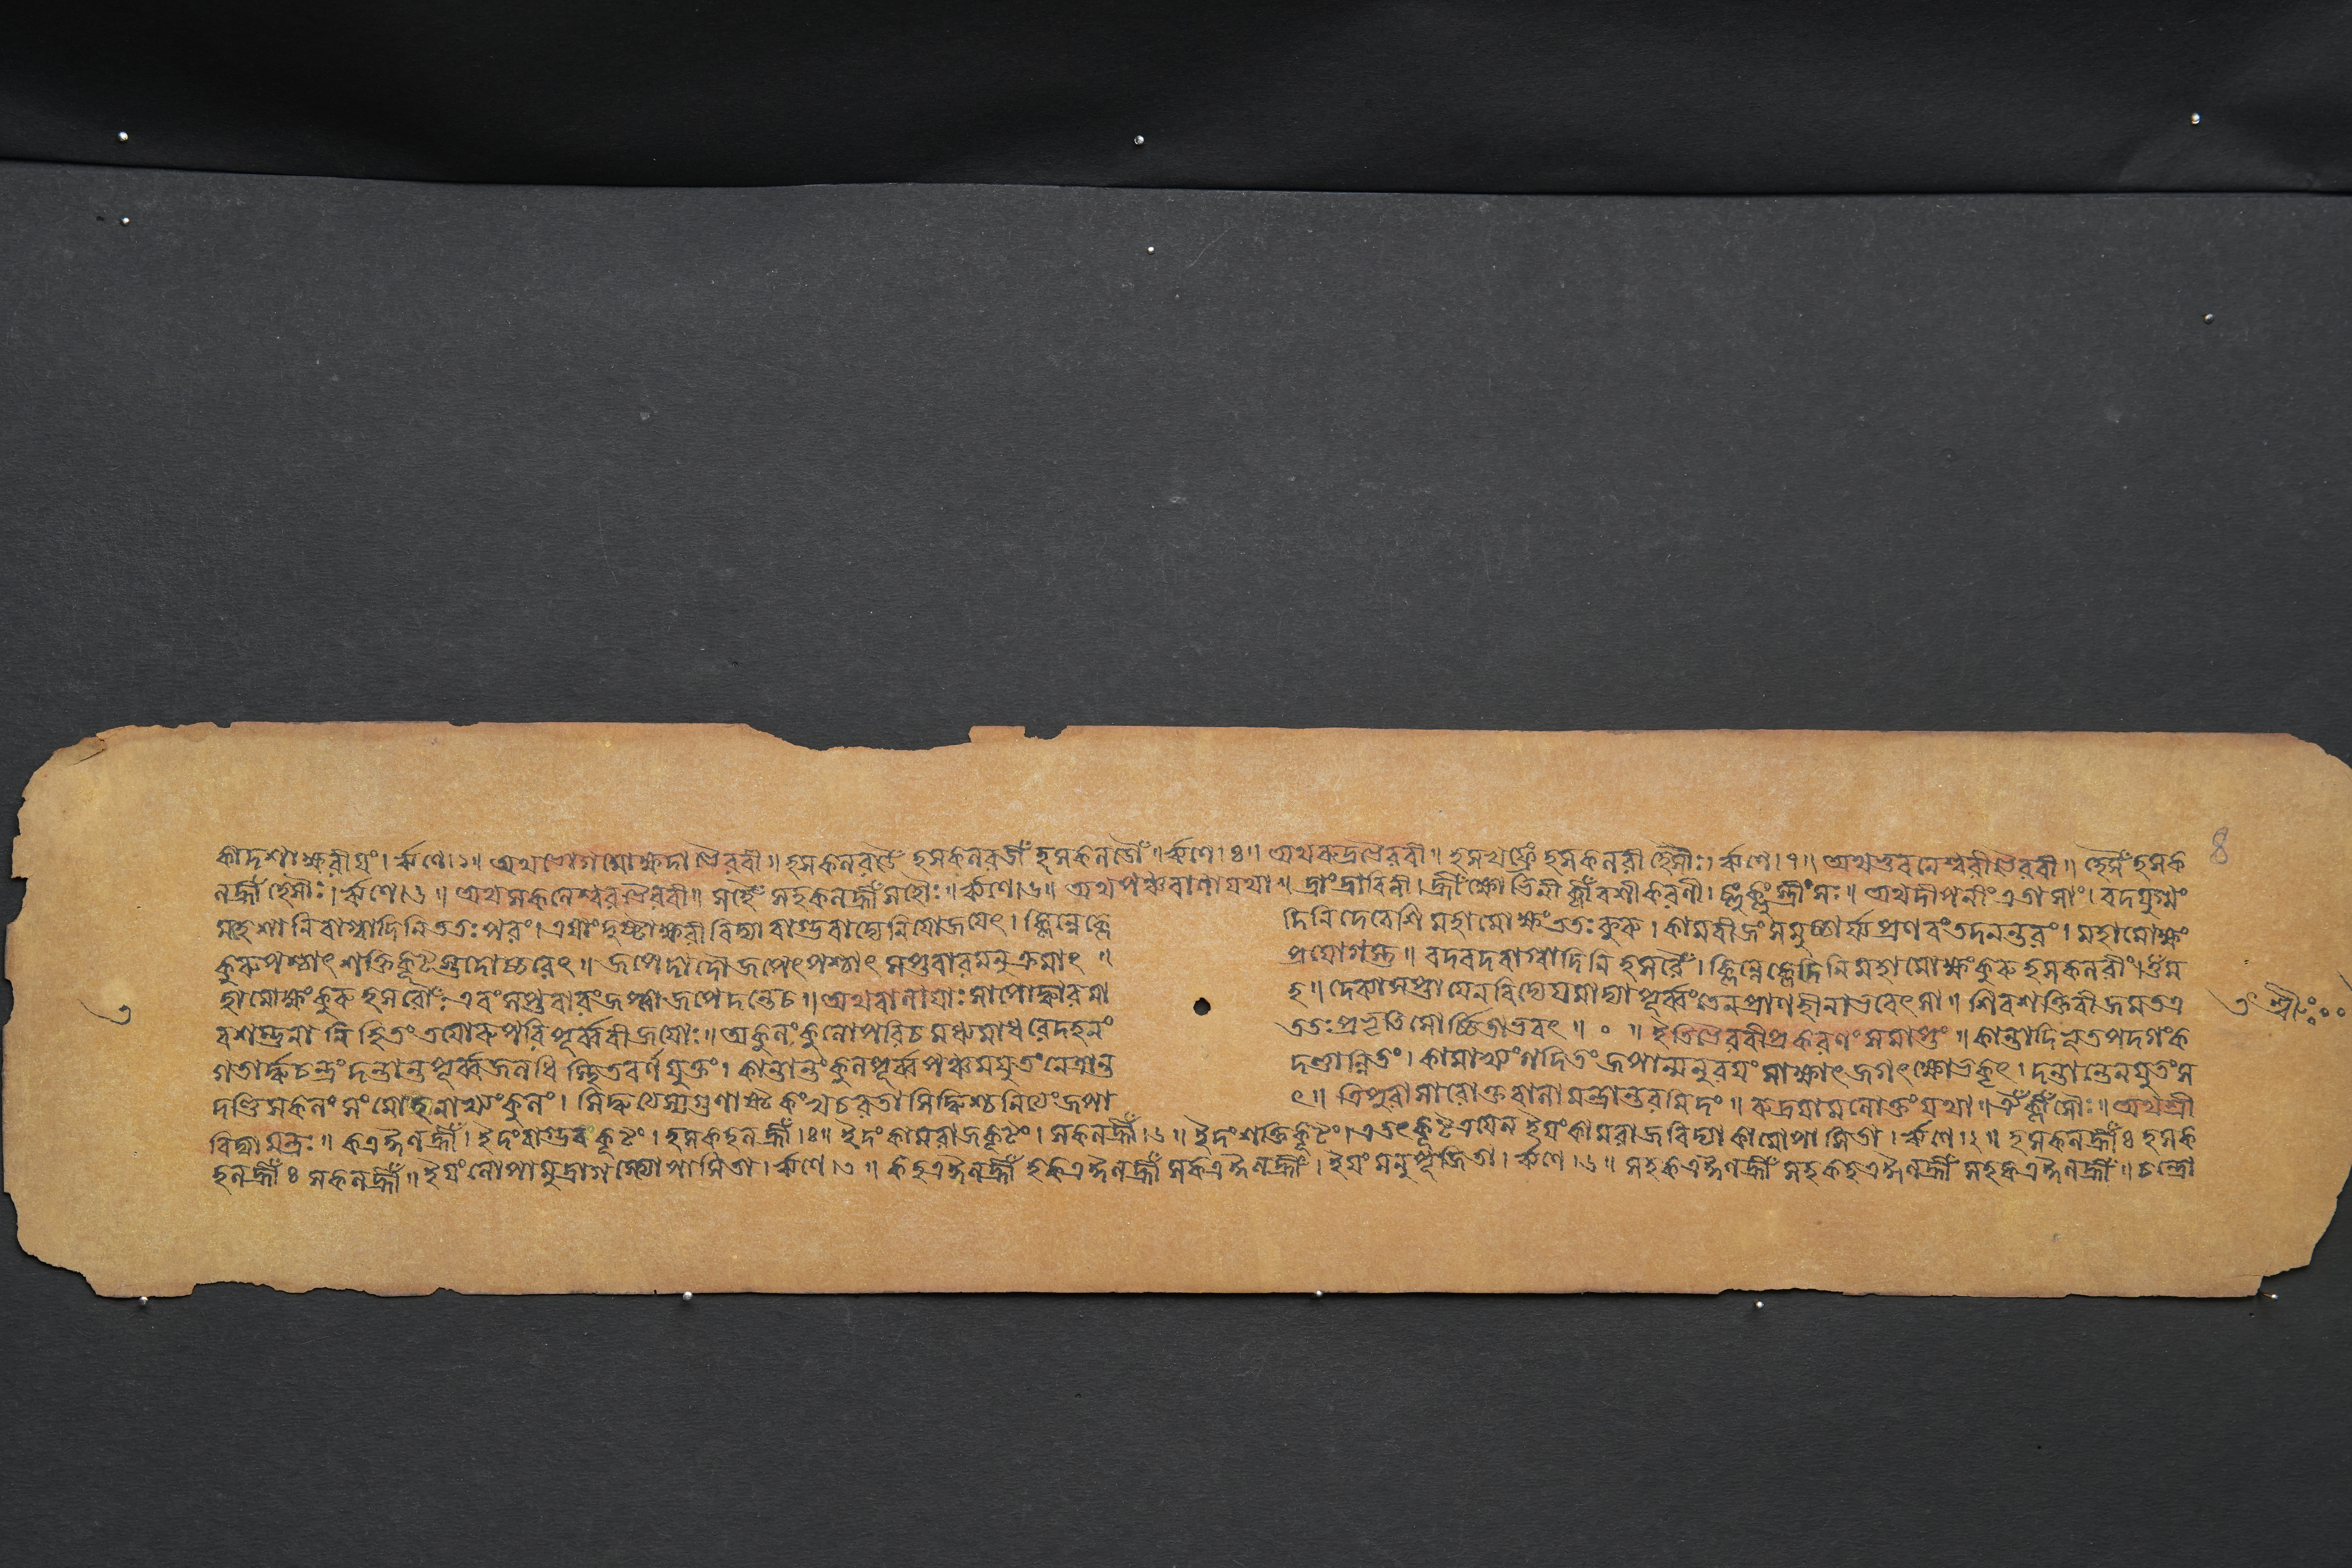 কাদশাক্ষরীয়ং। ঋণে।২॥ অথ ভোগমোক্ষদা ভৈরবী॥ হসকলরডৈঁ হসকলরডীঁ হসকলডৌঁ॥ ঋণে।৪॥ অথ রুদ্রভৈরবী॥ হসখফ্রেঁ হসকলরী হ্সৌঃ। ঋণে।৭॥ অথ ভুবনেশ্বরীভৈরবী॥ হ্সৈঁ হসক
8
লহ্রীঁ হ্সৌঃ। ঋণে।৬॥ অথ সকলেশ্বরভৈরবী॥ সহৈঁ সহকলহ্রীঁ সহৌঃ॥ ঋণে।৬॥ অথ পঞ্চবাণা যথা॥ দ্রাং দ্রাবিণী। দ্রীঁ ক্ষোভিণী ক্লীঁ বশীকরণী। সঃ॥ অথ দীপনীং এতাসাং। বদযুগ্মং
মহেশানি বাগ্বাদিনি ততঃ পরং। এষা বিদ্যা বাগ্ভবাদ্যে নিযোজয়েৎ। ক্লিন্নে ক্লে দিনি দেবেশি মহামোক্ষং ততঃ কুরু। কামবীজং সমুচ্চার্য্য প্রণবং তদনন্তরং। মহামোক্ষং
কুরু পশ্চাৎ শক্তিকূট মুদোচ্চরেৎ॥ জপেদাদৌ জপেৎ পশ্চাৎ সপ্তবারমনুক্রমাৎ॥ প্রয়োগস্তু॥ বদবদবাগ্বাদিনি হসরৈঁ। ক্লিন্নে ক্লেদিনি মহামোক্ষং কুরু হসকলরীঁ। ওঁ ম
হামোক্ষং কুরু হসরৌঃ। এবং সপ্তবারং জপ্ত্বা জপেদন্তে চ॥ অথ বালায়াঃ শাপোদ্ধারমা হ॥ দেব্যা শপ্তা যেন বিদ্যেয়মাদ্যা পূর্ব্বং তেন প্রাণহীনা ভবেৎ সা॥ শিবশক্তিবীজমতএ
৩
৩ শ্রীঃ
ব শম্ভুনা নিহিতং তয়োরুপরি পূর্ব্ববীজয়োঃ॥ অকুলং কুলোপরি চ মধ্যমাধরে দহনং ততঃ প্রভৃতি সোর্চ্ছিতাভবৎ॥ ০ ॥ ইতি ভৈরবীপ্রকরণং সমাপ্তং॥ কান্তাদিভূতপদগং ক
গতার্দ্ধচন্দ্রং দন্তান্তপূর্ব্বজলধিস্থিতবর্ণযুক্তং। কান্তান্তং কুলপূর্ব্বপঞ্চমযুতং নেত্রান্ত দণ্ডান্বিতং। কামাখ্যং গদিতং জপান্মনুরয়ং সাক্ষাৎ জগৎক্ষোভকৃৎ। দন্তান্তেন যুতং স
দণ্ডিসকলং সংমোহনাখ্যং কুলং। সিদ্ধ্যত্যেস্য গুণাষ্টকং খচরতা সিদ্ধিশ্চ নিত্যং জপা ৎ॥ ত্রিপুরাসারোক্ত বালামন্ত্রান্তরমিদং॥ রুদ্রযামলোক্তং যথা॥ ঐঁ ক্লীঁ সৌঃ॥ অথ শ্রী
বিদ্যামন্ত্রঃ॥ কএঈলহ্রীঁ। ইদং বাগ্ভবকূটং। হসকহলহ্রীঁ।ঃ॥ ইদং কামরাজকূটং। সকলহ্রীঁ।৬॥ ইদং শক্তিকূটং। এতৎ কূটত্রয়েন ইয়ং কামরাজবিদ্যা কামোপাসিতা। ঋণে।২॥ হসকলহ্রীঁঃ হসক
হলহ্রীঁঃ সকলহ্রীঁ॥ ইয়ং লোপামুদ্রাগস্ত্যোপাসিতা। ঋণে।৩॥ কহএঈলহ্রীঁ হকএঈলহ্রীঁ সকএঈলহ্রীঁ। ইয়ং মনুপূজিতা। ঋণে।৬॥ সহকএঈলহ্রীঁ সহকহএঈলহ্রীঁ সহকএঈলহ্রীঁ॥ চন্দ্রো